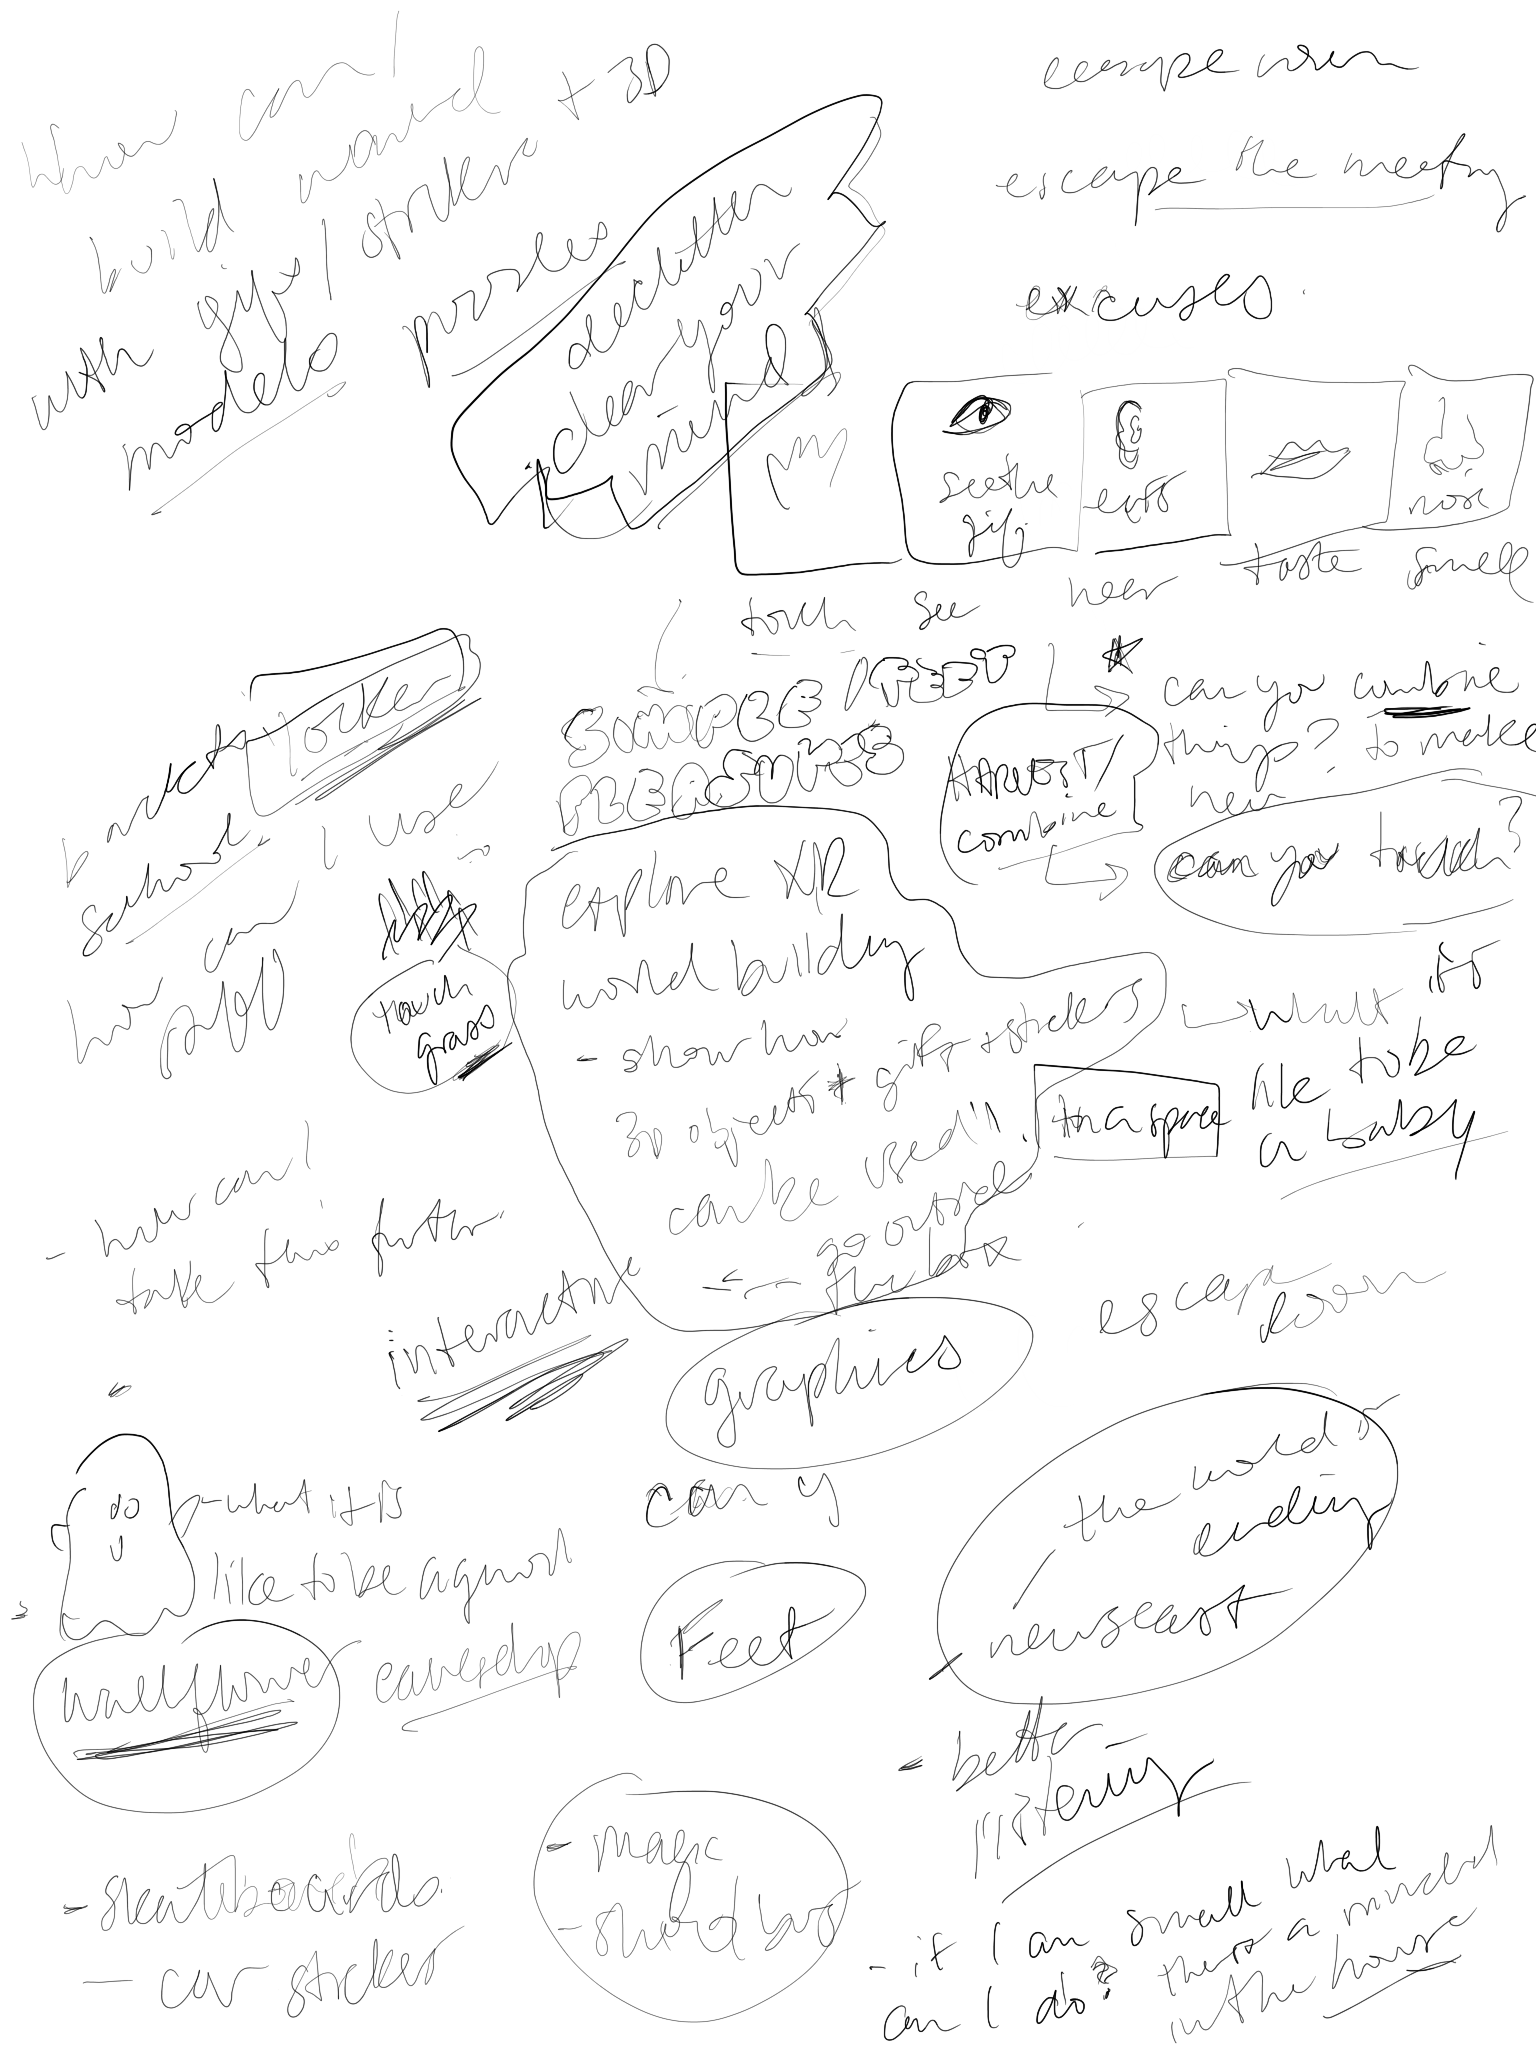 can I
build world
with gifs / stickers + 3D
models
puzzles
declutter
clear your
mind
escape room
escape the meeting
excuses.
see the
gif.
ears
nose
touch
see
hear
taste
smell
SIMPLE / FEET
PLEASURES
can you combine
things? to make
new
HARVEST/
combine
can you touch?
back to
school
locker
how can I use
touch
grass
explore XR
world building
- show how
3D objects + gifs + stickers
can be used in
in a space
go outside
the box
what it's
like to be
a baby
- how can I
take this further
interactive
graphics
escape
room
- what it is
like to be a ghost
wallflower
eavesdrop
can y
Feet
the world is
ending
- newscast
- better
listening
- skateboards
- car sticker
- magic
-
- if I am small what
can I do? there's a murder
in the house